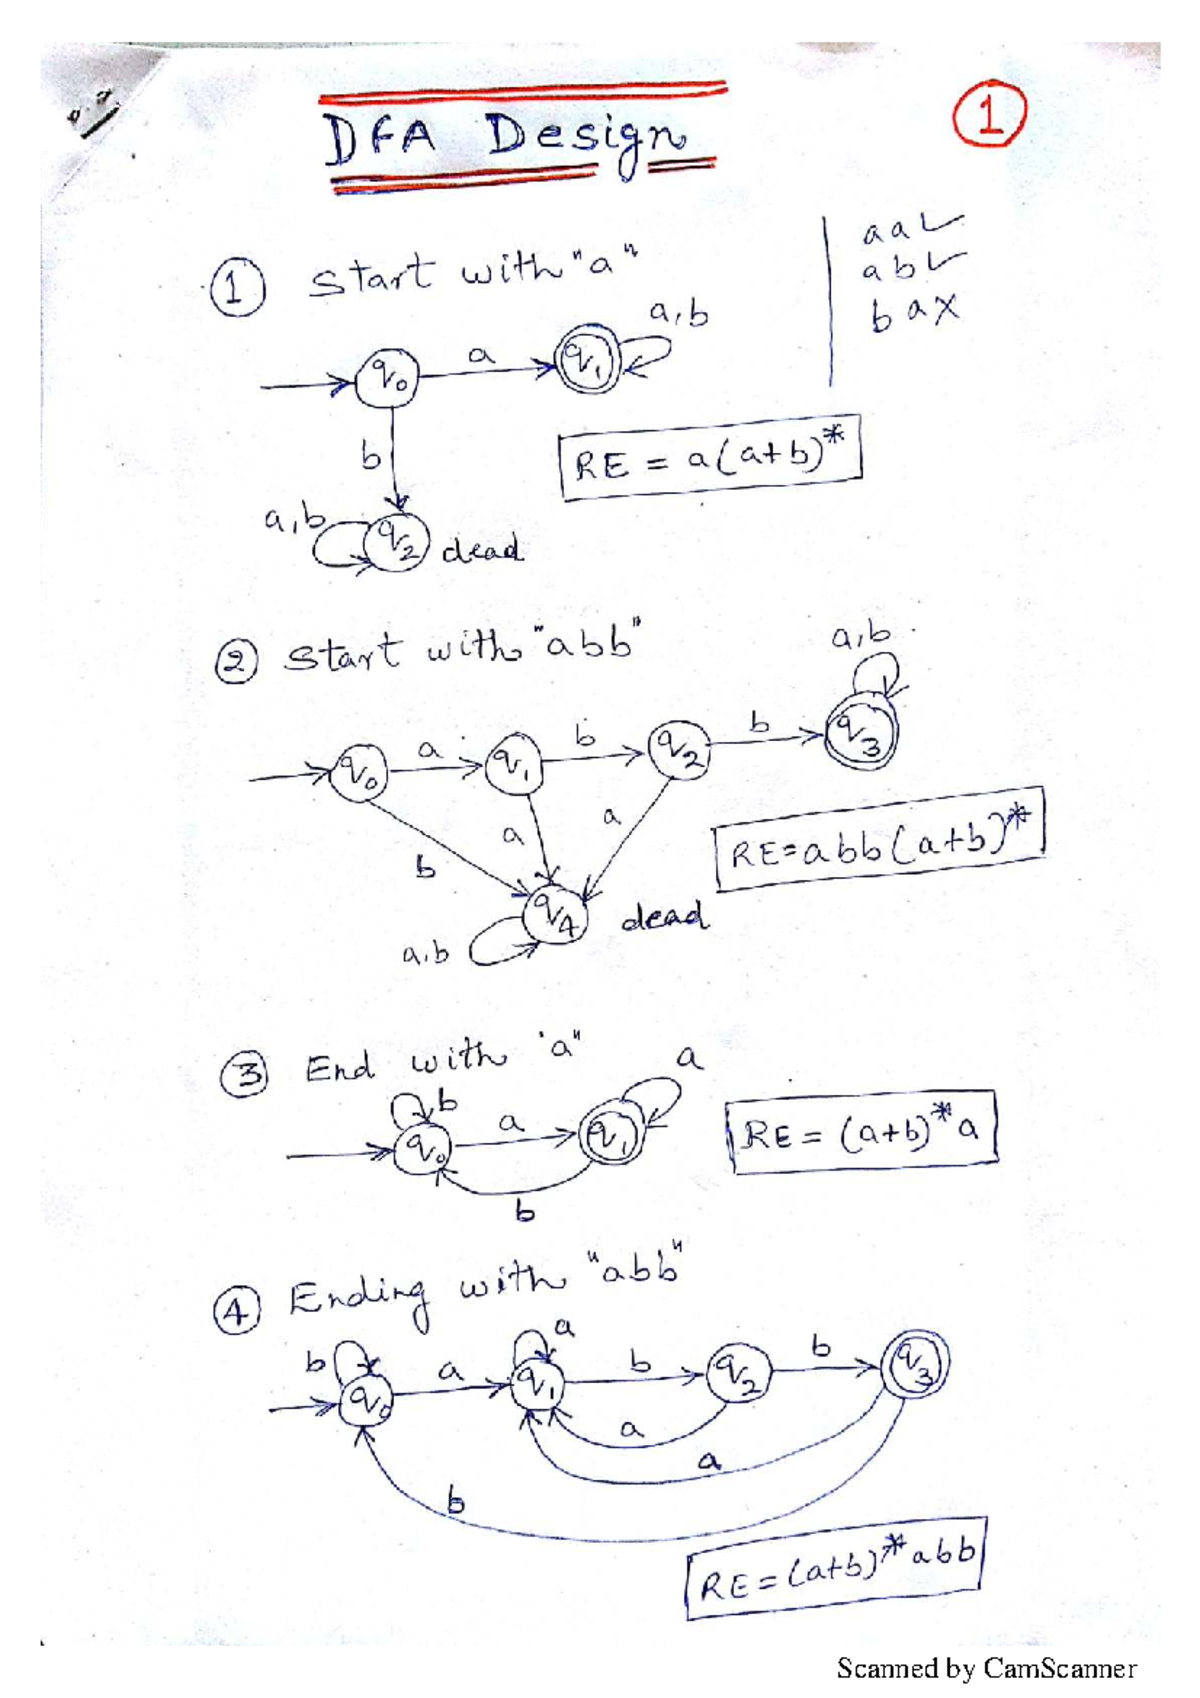 DFA Design
1
1 Start with "a"
aa✓
ab✓
ba✗
a,b
q0 a q1
b
RE = a(a+b)*
a,b
q2 dead
2 Start with "abb"
a,b
q0 a q1 b q2 b q3
b a a
RE=abb(a+b)*
q4 dead
a,b
3 End with "a"
b a
q0 a q1
RE = (a+b)*a
b
4 Ending with "abb"
b a
q0 a q1 b q2 b q3
a
a
b
RE=(a+b)*abb
Scanned by CamScanner